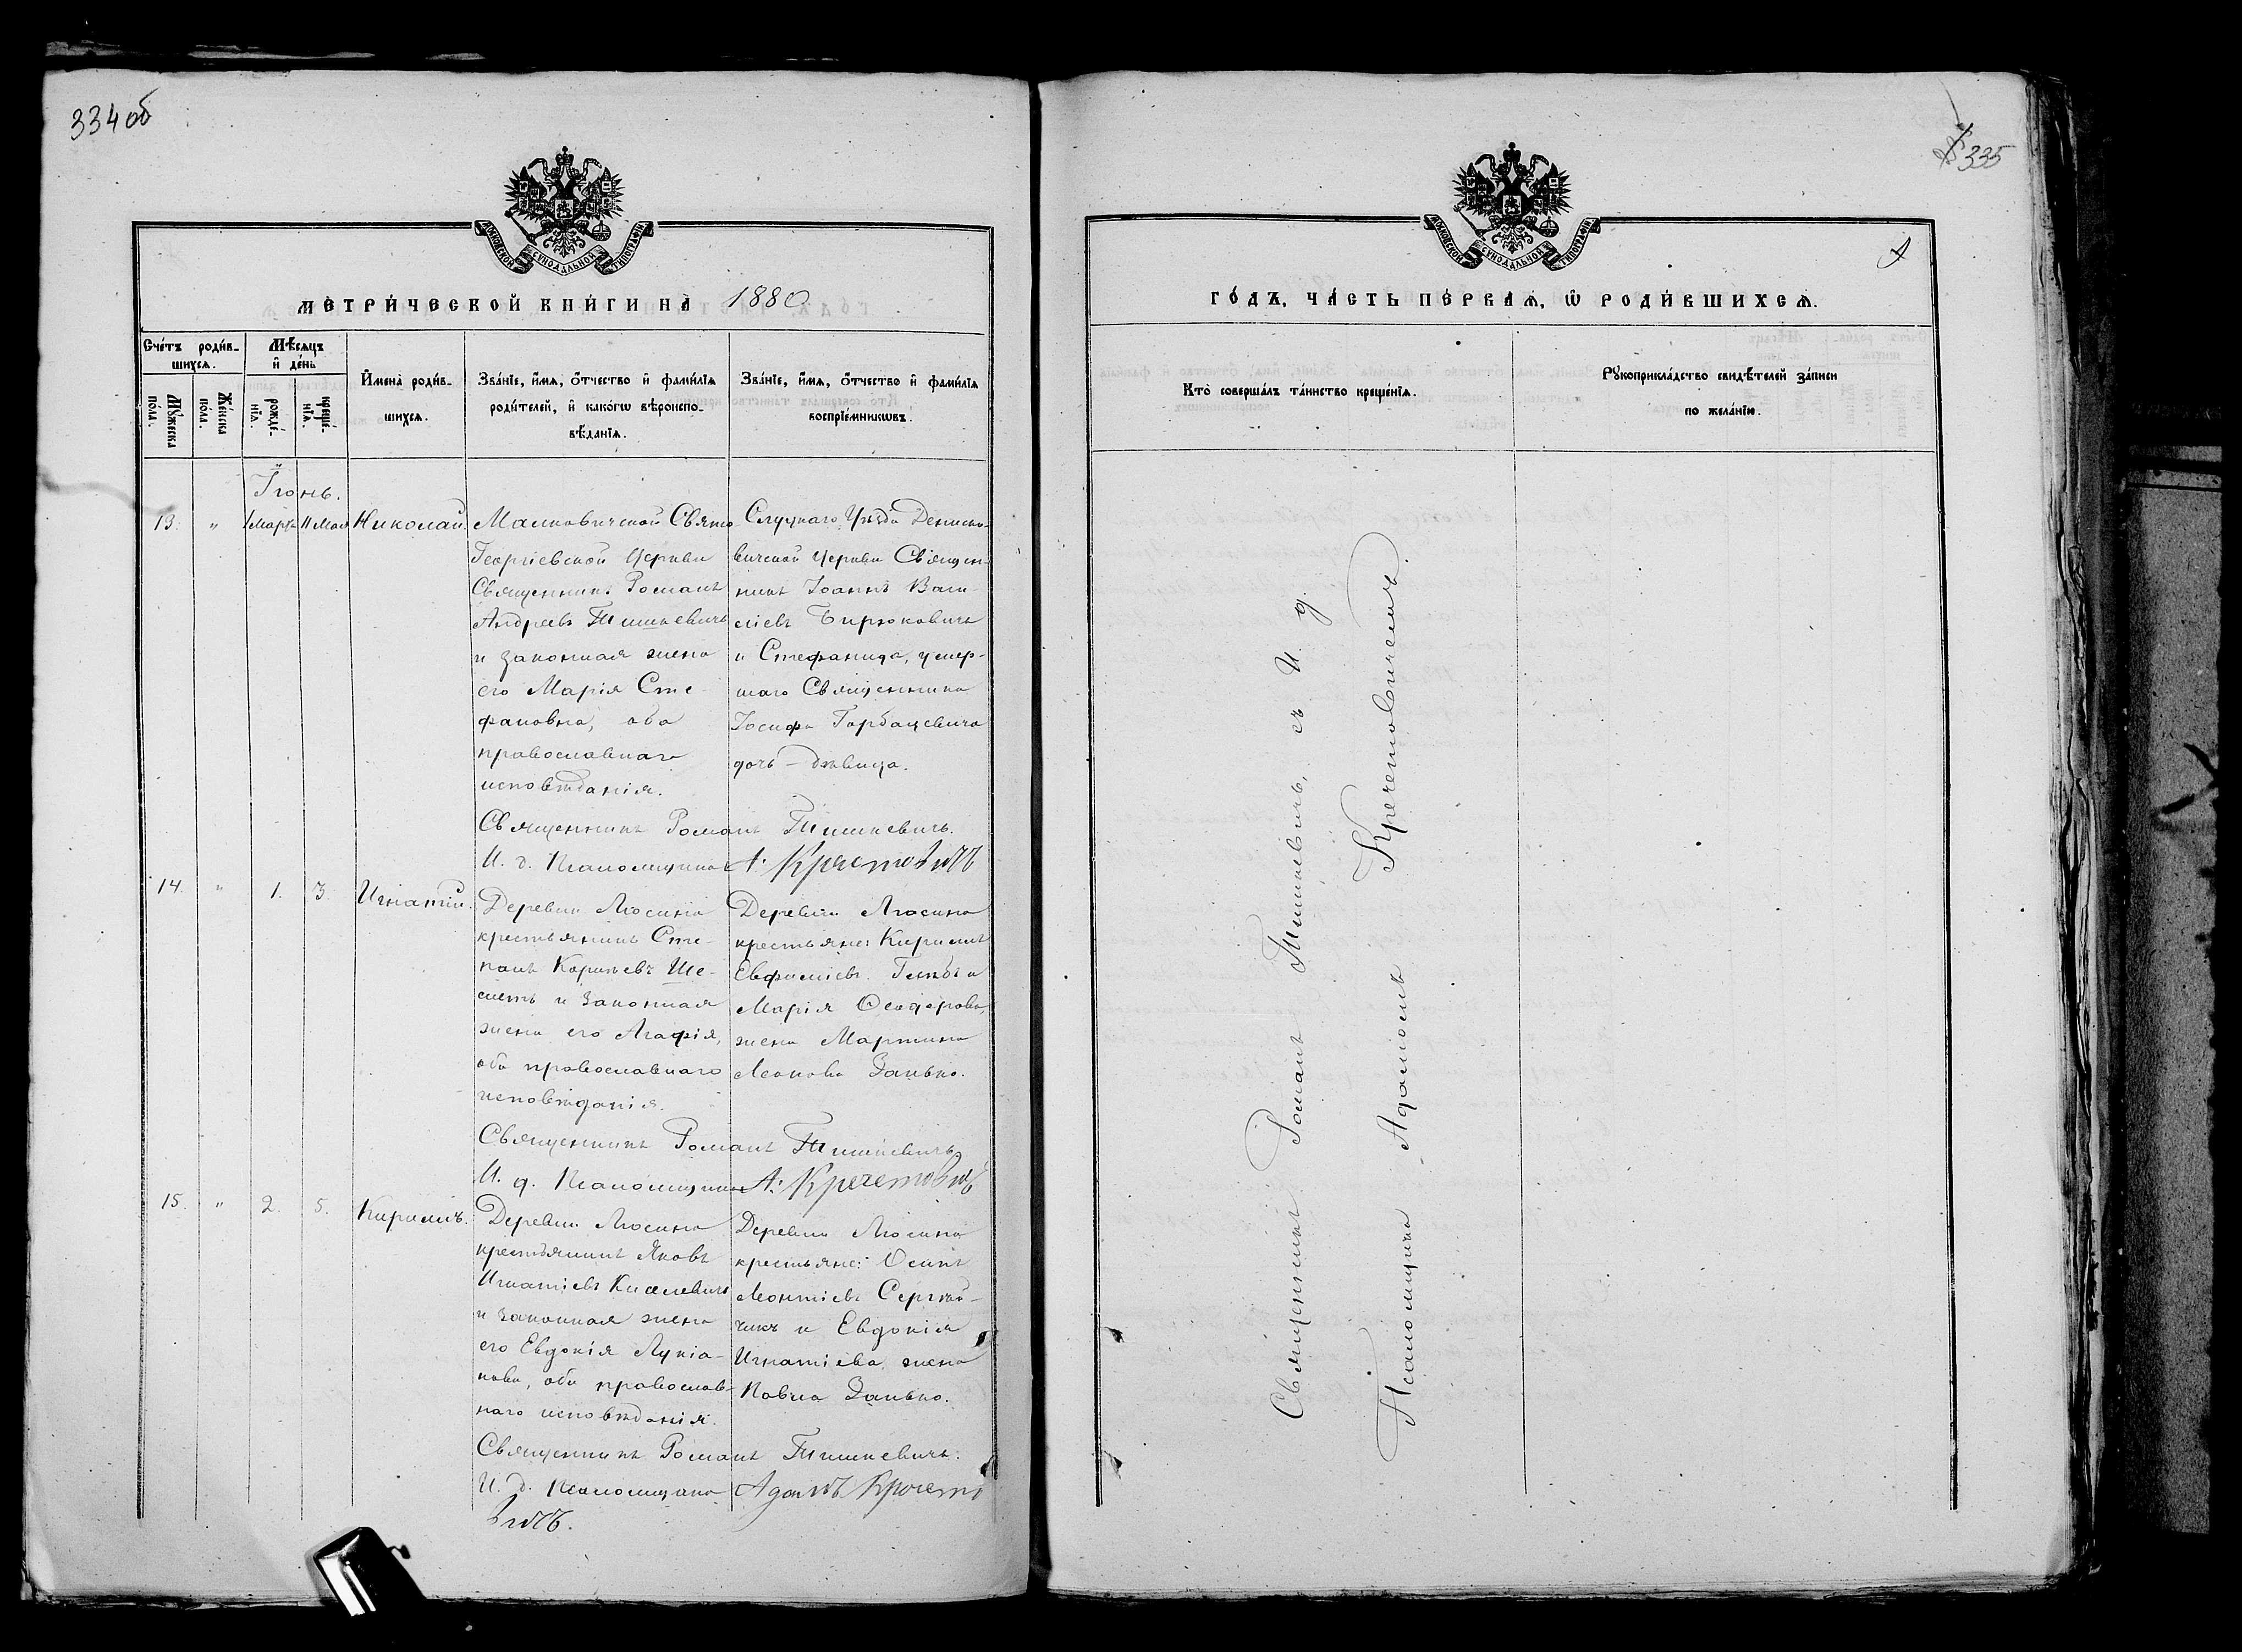 334 об
МОСКОВСКОЙ СѴНОДАЛЬНОЙ ТИПОГРАФІИ
МЕТРИ́ЧЕСКОЙ КНИ́ГИ НА̀ 1880
Сче́тъ роди́в-
шихсѧ.
Мѣ́сѧцъ
и҆ де́нь
Мꙋ́жеска по́ла.
Же́нска по́ла.
рожде́-
нїѧ.
креще́-
нїѧ.
И҆мена̀ роди́в-
шихсѧ.
Зва́нїе, и҆́мѧ, ѻ҆́тчество и҆ фами́лїѧ
роди́телей, и҆ како́гѡ вѣроиспо-
вѣ́данїѧ.
Зва́нїе, и҆́мѧ, ѻ҆́тчество и҆ фами́лїѧ
воспрїе́мникѡвъ.
Іюнь.
13. " 1 Март. 11 Мая Николай.
Малковичской Свято
Георгіевской Церкви
Священникъ Романъ
Андреевъ Тишкевичъ
и законная жена
его Марія Сте-
фановна, оба
православнаго
исповѣданія.
Слуцкаго Уѣзда Дениско-
вичской Церкви Священ-
никъ Іоаннъ Васи-
ліевъ Бирюковичъ
и Стефанида, умер-
шаго Священника
Іосифа Горбацевича
дочь - дѣвица.
Священникъ Романъ Тишкевичъ.
И. д. Псаломщика А. Кречетовичъ
14. " 1. 3. Игнатій.
Деревни Люсина
крестьянинъ Сте-
панъ Карпьевъ Ше-
лестъ и законная
жена его Агафія,
оба православнаго
исповѣданія.
Деревни Люсина
крестьяне: Кириллъ
Евфиміевъ и
Марія Ѳеодорова,
жена Мартина
Леонова Занько.
Священникъ Романъ Тишкевичъ
И. д. Псаломщика А. Кречетовичъ
15. " 2. 5. Кириллъ.
Деревни Люсина
крестьянинъ Яковъ
Игнатіевъ Киселевичъ
и законная жена
его Евдокія Лукіа-
нова, оба православ-
наго исповѣданія.
Деревни Люсина
крестьяне: Осипъ
Леонтіевъ Сергѣй-
чикъ и Евдокія
Игнатіева, жена
Павла Занько.
Священникъ Романъ Тишкевичъ.
И. д. Псаломщика Адамъ Кречето
вичъ.
335
МОСКОВСКОЙ СѴНОДАЛЬНОЙ ТИПОГРАФІИ
ГО́ДЪ, ЧА́СТЬ ПЕ́РВАѦ, Ѡ҆ РОДИ́ВШИХСѦ.
Кто̀ соверша́лъ та́инство креще́нїѧ.
Рꙋкоприкла́дство свидѣ́телей за́писи
по жела́нїю.
Священникъ Романъ Тишкевичъ, съ И. д.
Псаломщика Адамомъ Кречетовичемъ.